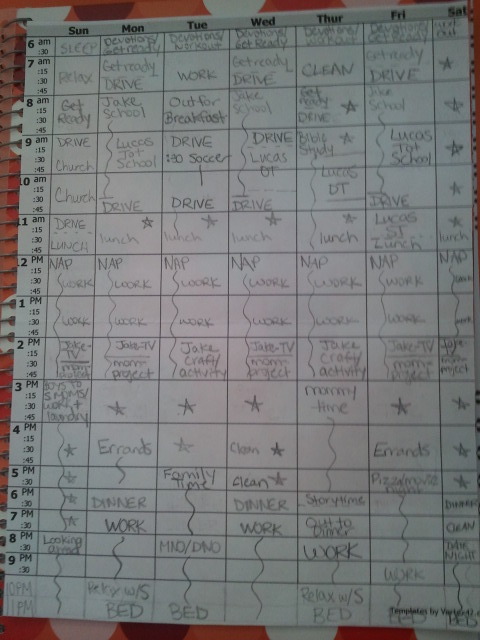 Sun Mon Tue Wed Thur Fri Sat
6 am SLEEP Devotions/ Devotions/ Devotions/ Devotions/ Devotions/
:30 Get ready workout Get Ready workout Get ready out
7 am Get ready Get ready Get ready
:15 Relax WORK CLEAN
:30 DRIVE DRIVE DRIVE
:45
8 am Get Jake Out for Jake Get Jake
:15 Ready School Breakfast School ready School
:30 DRIVE
:45
9 am DRIVE Lucas DRIVE DRIVE Bible Lucas
:15 Tot :30 Soccer Lucas Study Tot
:30 Church School OT School
:45
10 am Lucas
:15 Church OT
:30
:45 DRIVE DRIVE DRIVE DRIVE
11 am DRIVE Lucas
:15 ST
:30 LUNCH lunch lunch lunch lunch Lunch lunch
:45
12 PM NAP NAP NAP NAP NAP NAP NAP
:15
:30 WORK WORK WORK WORK WORK WORK WORK
:45
1 PM
:15
:30 WORK WORK WORK WORK WORK WORK WORK
:45
2 PM Jake-TV Jake-TV Jake Jake-TV Jake Jake-TV Jake-
:15 craft/ craft/ TV
:30 mom- mom- activity mom- activity mom- mom-
:45 project project project project project
3 PM Boys to Mommy
:15 S moms/ time
:30 work +
:45 laundry
4 PM
:15
:30 Errands Clean Errands
:45
5 PM Family Clean Pizza/movie
:30 Time night
6 PM DINNER DINNER Storytime
:30
7 PM WORK WORK Out to CLEAN
:30 Dinner
8 PM Looking MNO/DNO WORK DATE
:30 ahead NIGHT
9 PM
:30 WORK
10 PM Relax w/S Relax w/S
11 PM BED BED BED BED BED
Templates by Vertex42.com